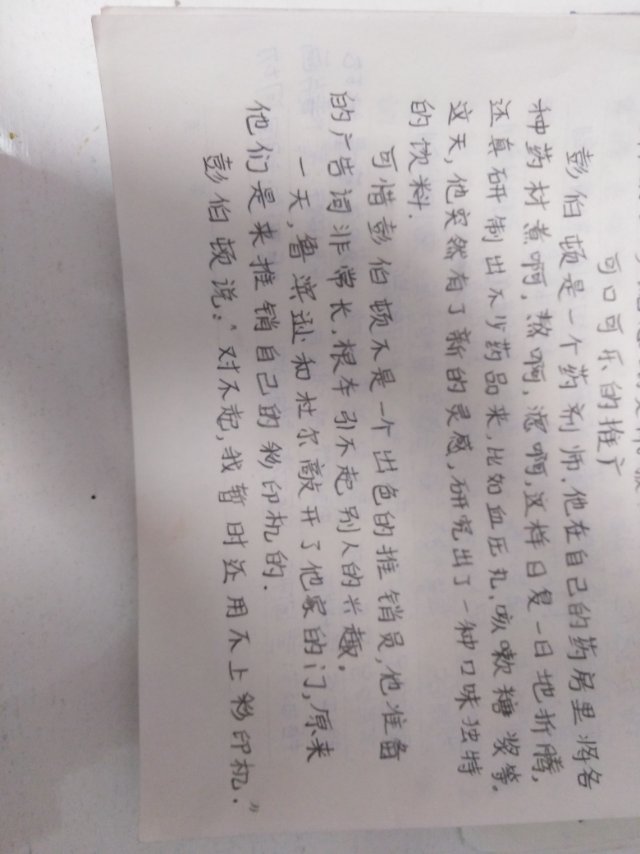 可口可乐的推广
彭伯顿是一个药剂师，他在自己的药房里将各
种药材煮啊，熬啊，滤啊，这样日复一日地折腾，
还真研制出不少药品来，比如血压丸，咳嗽糖浆等。
这天，他突然有了新的灵感，研究出了一种口味独特
的饮料．
可惜彭伯顿不是一个出色的推销员，他准备
的广告词非常长，根本引不起别人的兴趣。
一天，鲁滨逊和杜尔敲开了他家的门，原来
他们是来推销自己的彩印机的．
彭伯顿说：“对不起，我暂时还用不上彩印机．”